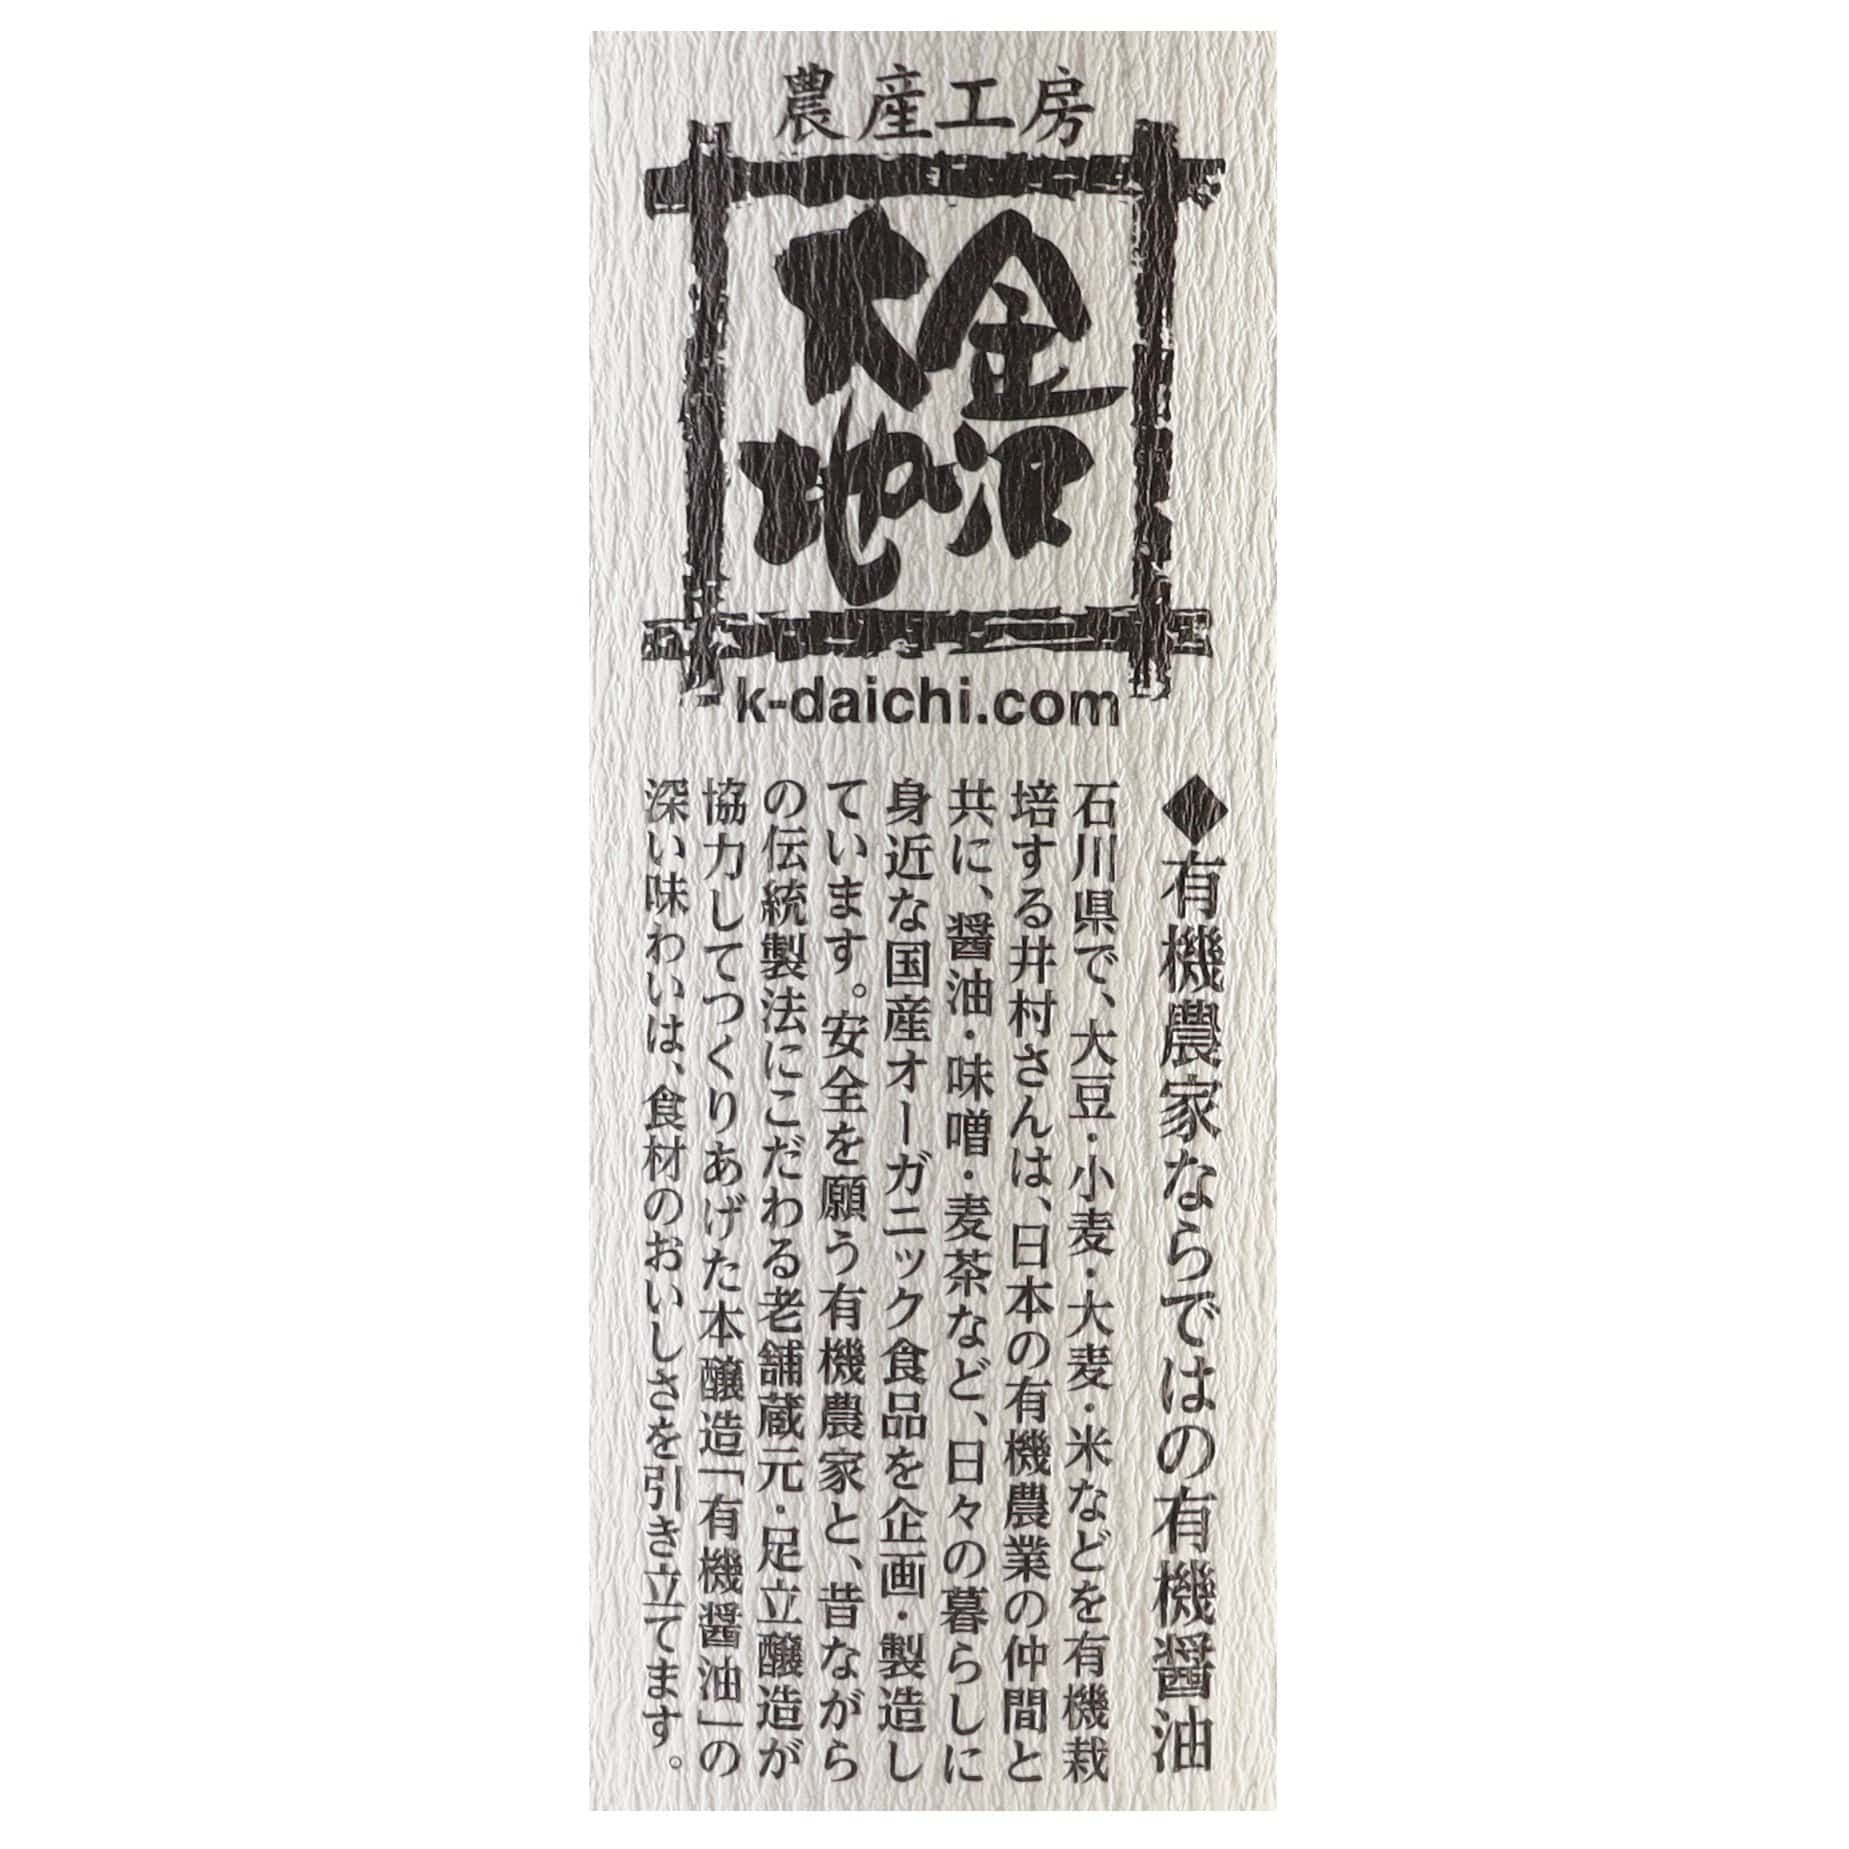 農産工房
金沢
大地
k-daichi.com
◆有機農家ならではの有機醤油
石川県で、大豆・小麦・大麦・米などを有機栽
培する井村さんは、日本の有機農業の仲間と
共に、醤油・味噌・麦茶など、日々の暮らしに
身近な国産オーガニック食品を企画・製造し
ています。安全を願う有機農家と、昔ながら
の伝統製法にこだわる老舗蔵元・足立醸造が
協力してつくりあげた本醸造「有機醤油」の
深い味わいは、食材のおいしさを引き立てます。